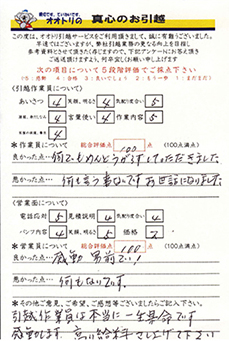 親切です。ていねいです。
オオトリの 真心のお引越
この度は、オオトリ引越サービスをご利用頂きまして、誠に有難うございました。
早速ではございますが、弊社引越業務の更なる向上を目指し
参考資料とさせて頂きたく存じますので、下記アンケートにお答え頂き
ご返送頂けますよう、何卒宜しくお願い申し上げます
次の項目について5段階評価でご採点下さい
(引越作業員について)
あいさつ 4 笑顔、明るさ 4 気配り安心 5
4 言葉使い 4 作業内容 5
4 4
※作業員について 総合評価点 100 点 (100点満点)
良かった点…
悪い点… 何も言う事ないです お世話になりました
(営業面について)
電話応対 5 見積説明 4 気配り安心 4
パンフ内容 4 笑顔、明るさ 5 価格
※営業員について 総合評価点 100 点 (100点満点)
良かった点… 感動 男前で!
悪い点… 何もないです。
※その他ご意見、ご希望、ご感想等ございましたらご記入下さい。
引越作業員は本当に一生懸命で
感動します 高い給料 さし上げて下さい